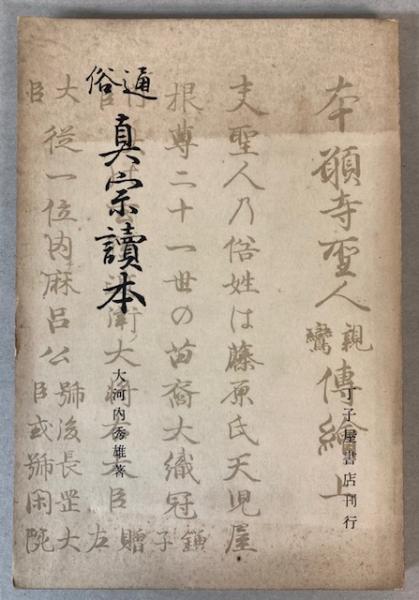 通俗
真宗讀本
大河内秀雄著
丁子屋書店刊行
本願寺聖人親鸞傳繪上
夫聖人乃俗姓は藤原氏天児屋
根尊二十一世の苗裔大織冠鎌子
衛大将右大臣贈左
大臣従一位内麻呂公號後長罡大
臣或號閑院